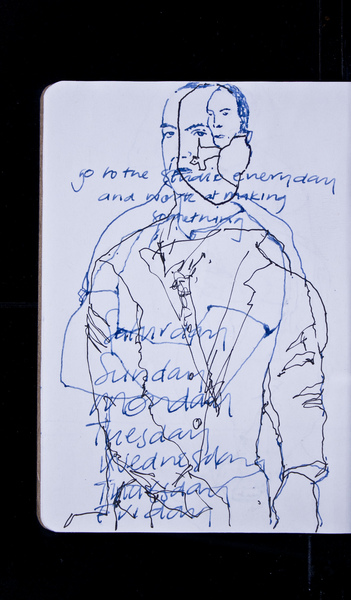 go to the studio everyday
and work at making
something
Saturday
Sunday
Monday
Tuesday
Wednesday
Thursday
Friday